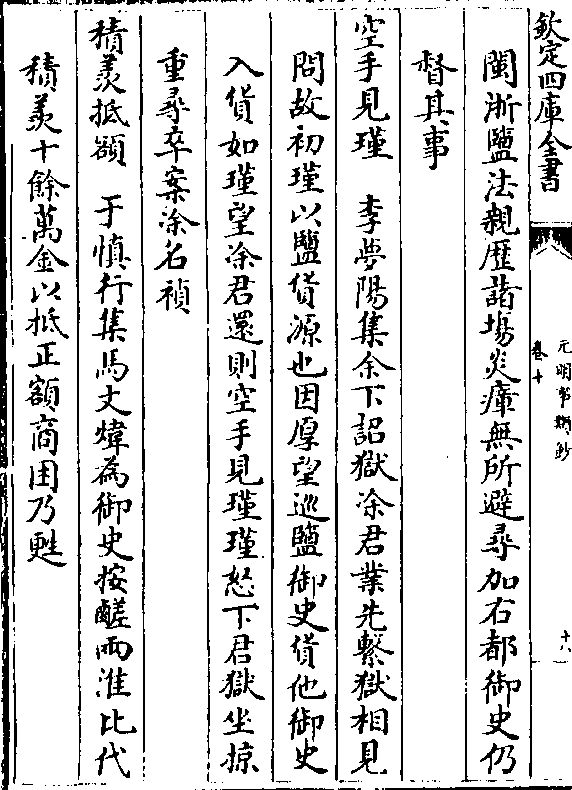 欽定四庫全書
元明事類鈔
卷十
十八
閩浙鹽法親歴諸場炎瘴無所避尋加右都御史仍
督其事
空手見瑾　李夢陽集余下詔獄凃君業先繫獄相見
問故初瑾以鹽貨源也因厚望巡鹽御史貨他御史
入貨如瑾望凃君還則空手見瑾瑾怒下君獄坐掠
重尋卒案凃名禎
積羡抵額　于慎行集馬文煒為御史按鹾兩淮比代
積羡十餘萬金以抵正額商困乃甦